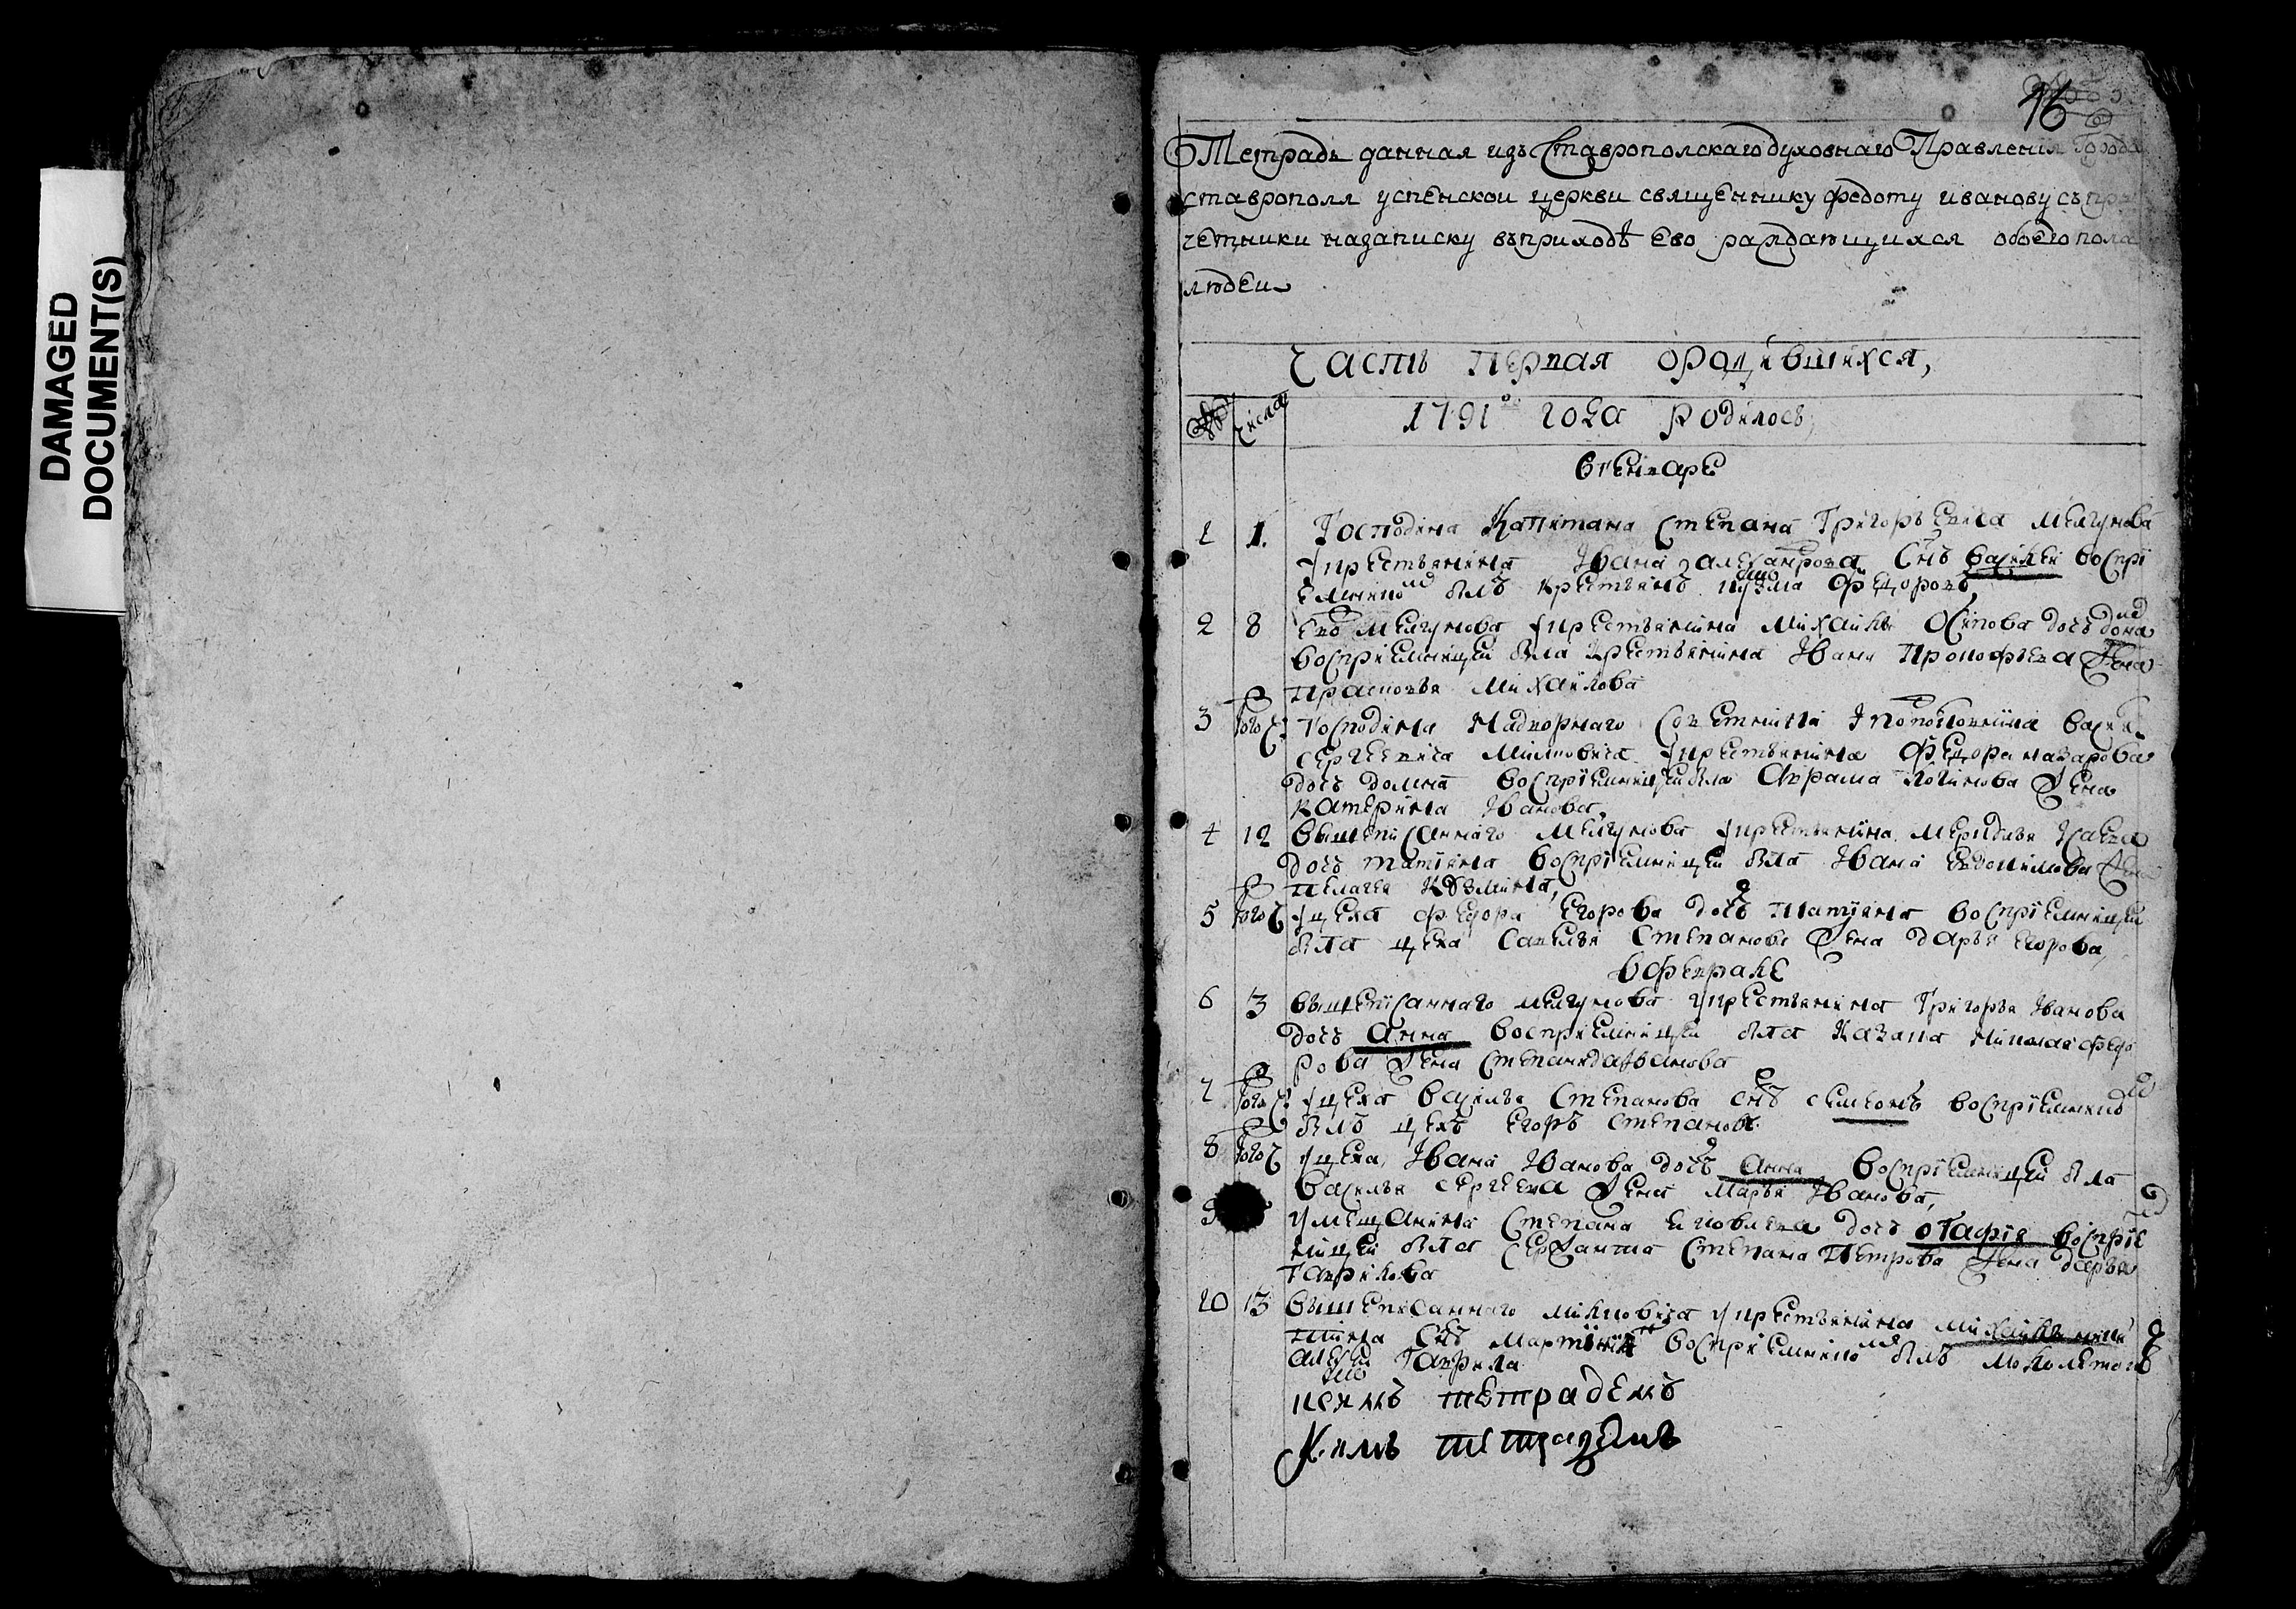 DAMAGED
DOCUMENT(S)
16
Тетрадь данная изъ Ставрополскаго духовнаго Правления города
ставрополя успенской церкви священнику федоту иванову съ при
четники на записку въ приходѣ Ево раждающихся обоего пола
людеи
Часть первая о родившихся,
№ числа
1791 года родилось,
в генваре
1 1. Господина Капитана Степана Григорьевича Мелгунова
у крестьянина Ивана александрова снъ василеи воспри
емнико был крестьянинъ кузма Федоровъ,
2 8 Ево Мелгунова у крестьянина Михаилы Осипова дочь домна
восприемницеи была крестьянина Ивана Прокофьева Жена
прасковья Михаилова
3 того ч: Господина Надворнаго Советника васил
сергеевича Милковича у крестьянина Федора назарова
дочь домна восприемницеи была Аврама логинова Жена
катерина Иванова,
4 12 Вышеписаннаго Мелгунова у крестьянина
дочь татияна восприемницеи была Ивана Евдокимова
пелагея Козмина,
5 того ч у цеха федора Егорова дочь татияна восприемницеи
была цеха Савелья Степанова Жена дарья Егорова,
в феврале
6 3 вышеписаннаго мелгунова у крестьянина Григорья Иванова
дочь Анна восприемницеи была Казака Николая федо
рова Жена Степанида Иванова
7 того ч: у цеха Василья Степанова снъ семеонъ восприемнико
былъ цехъ Егоръ степановъ.
8 того ч у цеха, Ивана Иванова дочь Анна восприемницеи была
василья сергеева Жена Марья Иванова,
9 у мещанина Степана яковлева дочь огафия восприе
мницеи была сержанта Степана Петрова Жена дарья
Гаврилова
10 13 вышеписаннаго милковича у крестьянина михаилы ники
тина снъ мартинъ восприемнико былъ малолетокъ
алексеи Гаврила
кехмъ тетрадемъ
К симъ тетрадемъ